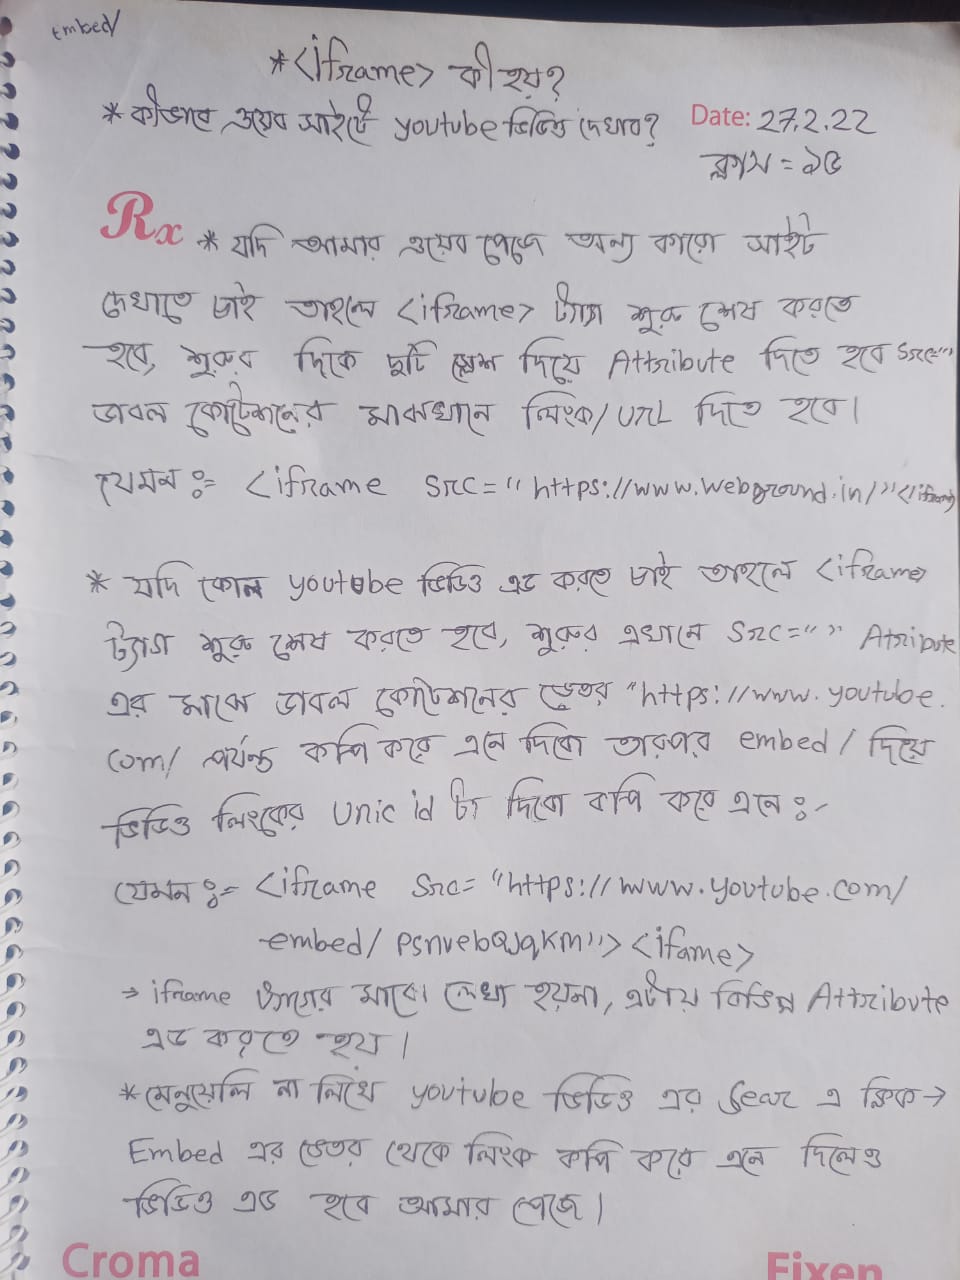 embed/
*<iframe> কী হয়?
* কীভাবে ওয়েব সাইটে youtube ভিডিও দেখাব?
Date: 27.2.22
ক্লাস = ১৫
Rx * যদি আমার ওয়েব পেজে অন্য কারো সাইট
দেখাতে চাই তাহলে <iframe> ট্যাগ শুরু শেষ করতে
হবে, শুরুর দিকে দুটি স্পেশ দিয়ে Attribute দিতে হবে src=""
ডাবল কোটেশনের মাঝখানে লিংক/ URL দিতে হবে।
যেমন ঃ= <iframe src="https://www.webground.in/"</iframe>
* যদি কোন youtube ভিডিও এড করতে চাই তাহলে <iframe>
ট্যাগ শুরু শেষ করতে হবে, শুরুর এখানে src="" Attribute
এর মাঝে ডাবল কোটেশনের ভেতর "https://www.youtube.
com/ পর্যন্ত কপি করে এনে দিবো তারপর embed/ দিয়ে
ভিডিও লিংকের Unic id টা দিবো কপি করে এনে ঃ-
যেমন ঃ= <iframe src="https://www.youtube.com/
embed/ psnvebQJqKM"> <ifame>
→ iframe ট্যাগের মাঝে লেখা হয়না, এটায় বিভিন্ন Attribute
এড করতে হয়।
*মেনুয়েলি না লিখে youtube ভিডিও এর Sear এ ক্লিক →
Embed এর ভেতর থেকে লিংক কপি করে এনে দিলেও
ভিডিও এড হবে আমার পেজে।
Croma
Fixen